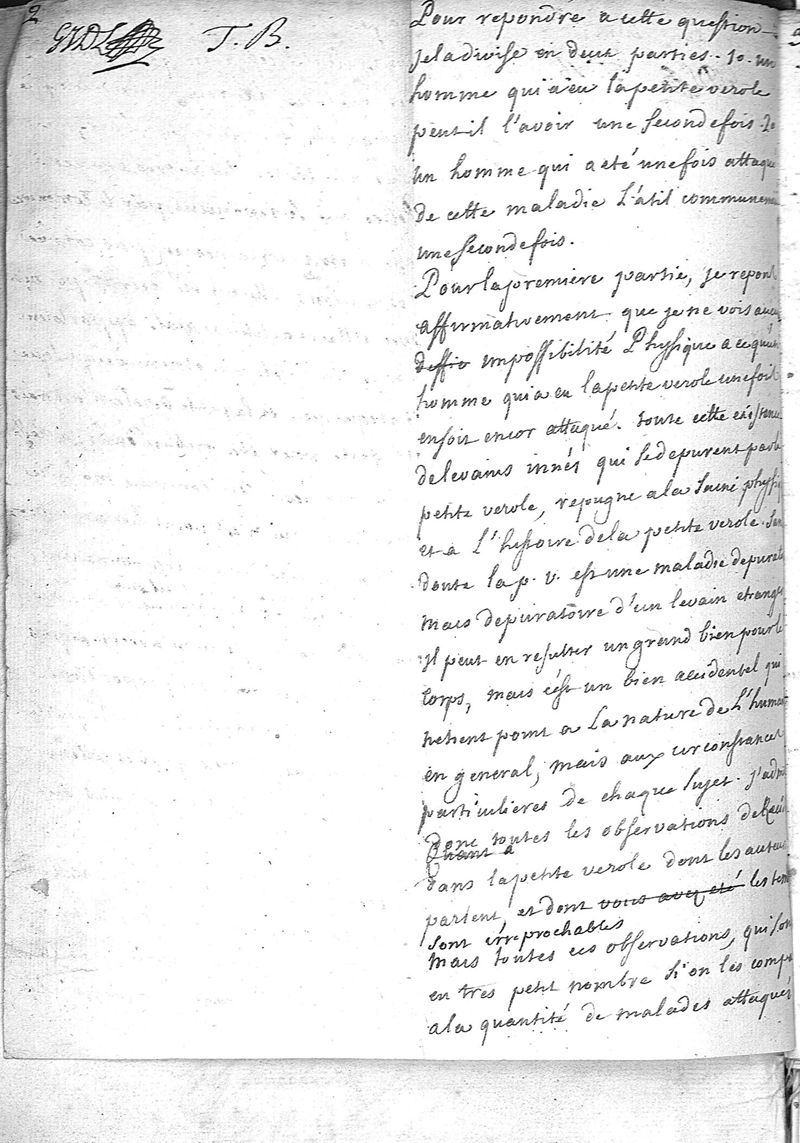 2
T. B.
Pour repondre a cette question
je la divise en deux parties. 1o. un
homme qui a eu la petite verole
peut il l'avoir une seconde fois. 2o
un homme qui a eté une fois attaqué
de cette maladie L'at il communeme
une seconde fois.
Pour la premiere partie, je repont
affirmativement que je ne vois aucu
impossibilité Physique a ce qu'un
homme qui a eu la petite verole une fois
en soit encor attaqué. toute cette existence
de levains innés qui se depurent par la
petite verole, repugne a la saine physi
et a L'histoire de la petite verole. San
doute la p. v. est une maladie depurato
mais depuratoire d'un levain etranger
il peut en resulter un grand bien pour le
corps, mais c'est un bien accidentel qui
ne tient point a La nature de L'humani
en general, mais aux circonstances
particulieres de chaque sujet. j'adm
donc toutes les observations de Reci
Quant a
dans la petite verole dont les auteurs
parlent, et dont vous avez eté les tem
sont irreprochables
mais toutes ces observations, qui son
en tres petit nombre si on les compa
a la quantité de malades attaqués